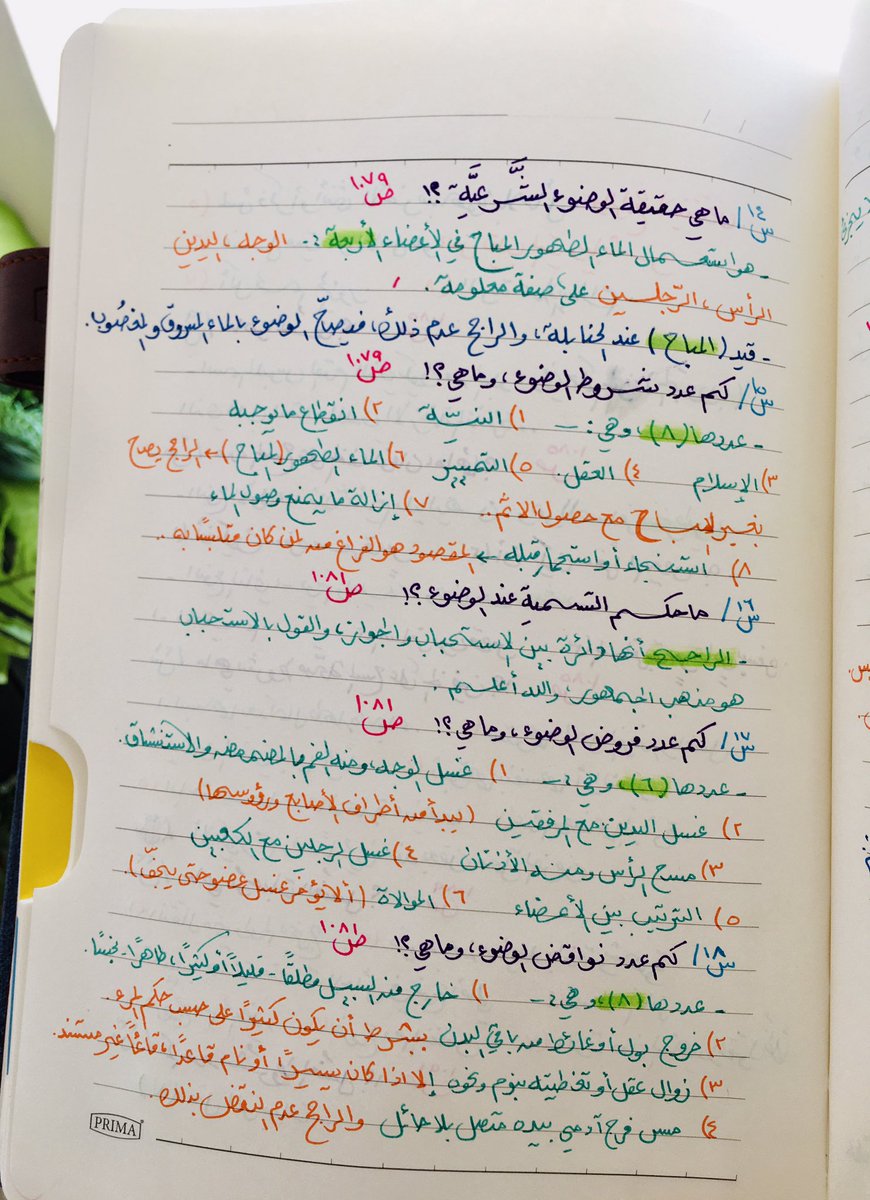 س١٤/ ما هي حقيقة الوضوء الشَّرعيَّة؟! ص١٠٧٩
ـ هو استعمال الماء الطهور المباح في الأعضاء الأربعة :ـ الوجه، اليدين
الرأس، الرّجلين على صفة معلومة.
ـ قيد (المباح) عند الحنابلة، والراجح عدم ذلك، فيصحّ الوضوء بالماء المسروق والمغصوب.
س١٥/ كم عدد شروط الوضوء، وما هي؟! ص١٠٧٩
ـ عددها (٨)، وهي :ـ ١) النيّة ٢) انقطاع ما يوجبه
٣) الإسلام ٤) العقل. ٥) التمييز ٦) الماء الطهور (المباح) ← الراجح يصح
بغير المباح مع حصول الإثم. ٧) إزالة ما يمنع وصول الماء
٨) استنجاء أو استجمار قبله ← المقصود هو الفراغ منه لمن كان متلبسًا به.
س١٦/ ما حكم التسمية عند الوضوء؟! ص١٠٨١
ـ الراجح أنها دائرة بين الاستحباب والجواز، والقول بالاستحباب
هو مذهب الجمهور، والله أعلم.
س١٧/ كم عدد فروض الوضوء، وما هي؟! ص١٠٨١
ـ عددها (٦)، وهي :ـ ١) غسل الوجه، ومنه الفم بالمضمضة والاستنشاق.
٢) غسل اليدين مع المرفقين (يبدأ من أطراف الأصابع ورؤوسها)
٣) مسح الرأس ومنه الأذنان ٤) غسل الرجلين مع الكعبين
٥) الترتيب بين الأعضاء ٦) الموالاة (ألا يؤخر غسل عضو حتى يجفّ).
س١٨/ كم عدد نواقض الوضوء، وما هي؟! ص١٠٨١
ـ عددها (٨)، وهي :ـ ١) خارج من السبيل مطلقًا ـ قليلًا أو كثيرًا، طاهرًا ـ نجسًا.
٢) خروج بول أو غائط من باقي البدن بشرط أن يكون كثيرًا على حسب حكم المرء
٣) زوال عقل أو تغطيته بنوم ونحوه إلا إذا كان يسيرًا أو نام قاعدًا، قائمًا غير مستند.
٤) مس فرج آدمي بيده متصل بلا حائل والراجح عدم النقض بذلك.
PRIMA